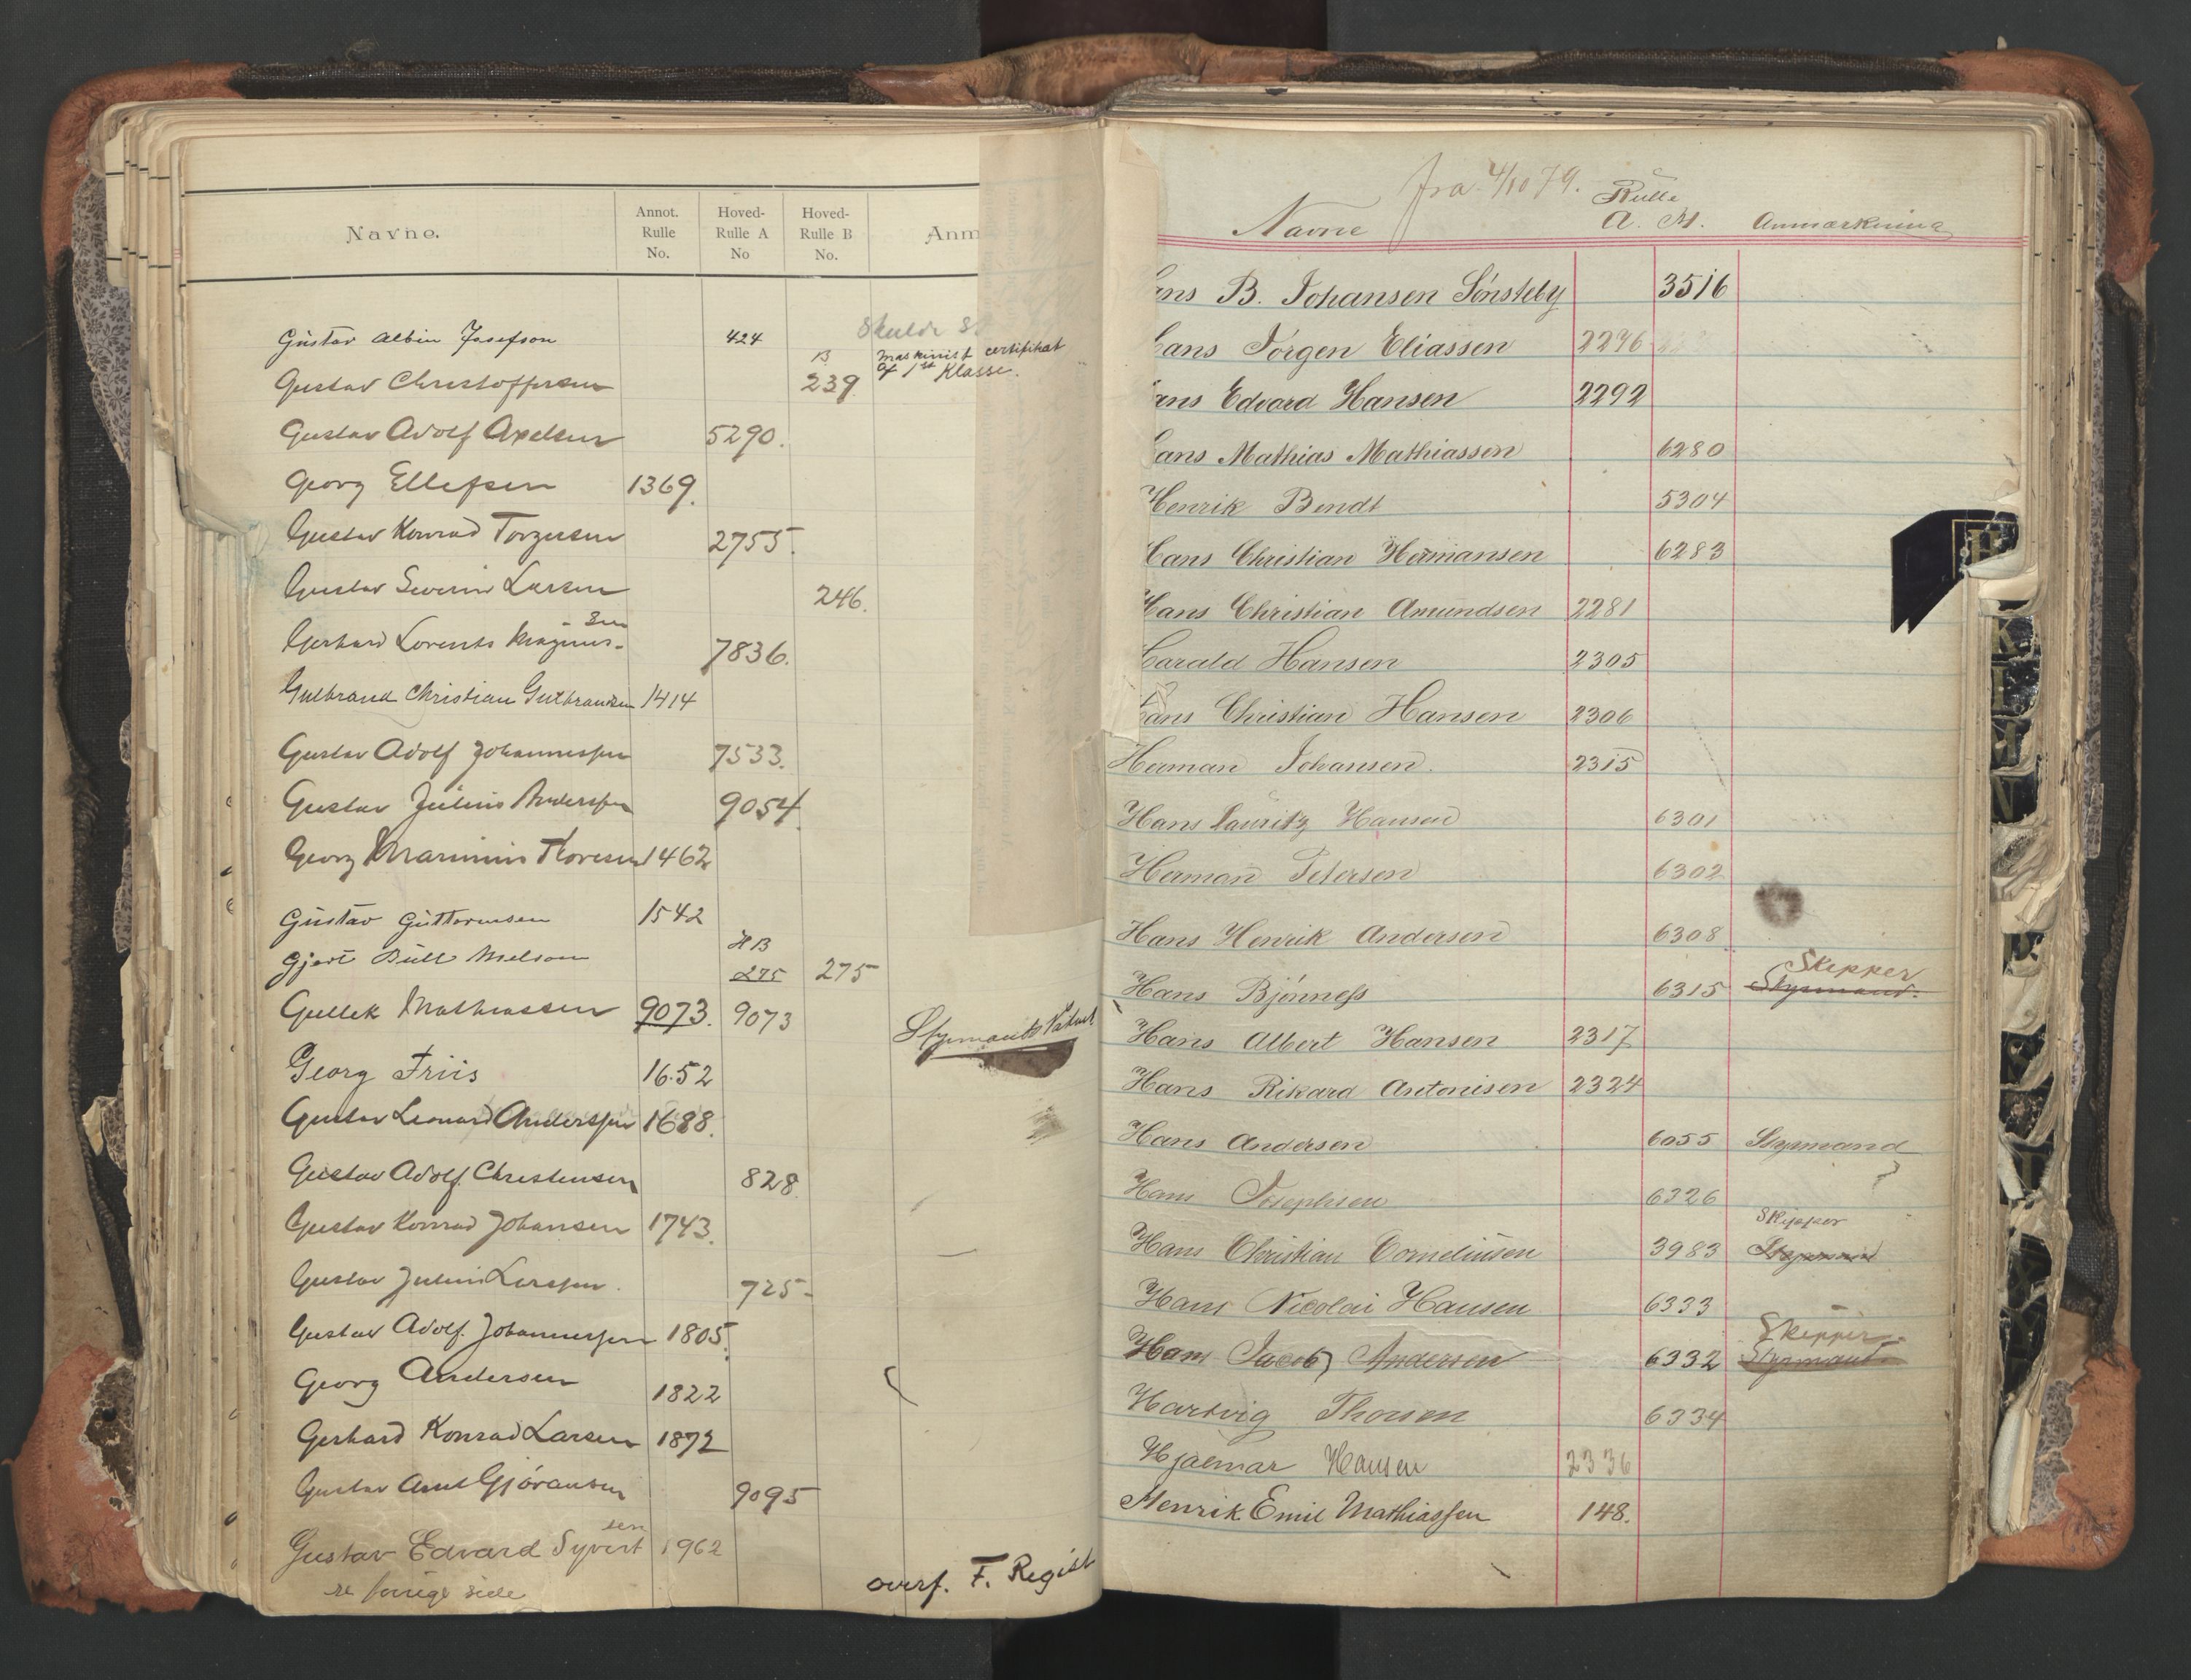 Navne.
Annot. Rulle No.
Hoved-Rulle A No
Hoved-Rulle B No.
Anm
Gustav Albin Josefson 424 Skulde
Gustav Christoffersen B 239. Maskinist certifikat af 1ste Klasse.
Gustav Adolf Axelsen 5290.
Georg Ellefsen 1369.
Gustav Konrad Torgersen 2755.
Gustav Severin Larsen 246.
Gerhard Lorents Magnus-sen 7836.
Gulbrand Christian Gulbrandsen 1414
Gustav Adolf Johannessen 7533.
Gustav Julius Anderssen 9054.
Georg Thoresen 1462
Gustav Guttormsen 1542
Gjert Bull Melsom HB 275 275
Gullek Mathiassen 9073. 9073 Styrmands
Georg Friis 1652
Gustav Leonard Anderssen 1688.
Gustav Adolf Christensen 828
Gustav Konrad Johansen 1743.
Gustav Julius Larssen. 725-
Gustav Adolf. Johannessen 1805.
Georg Andersen 1822
Gerhard Konrad Larsen 1872
Gustav Gjøransen 9095
Gustav Edvard Syvertsen 1962
se forrige side
overf. F. Regist
fra 4/10 79.
Navne Rulle A. M. Anmærkning
ans B. Johansen Sønsteby 3516
ans Jørgen Eliassen 2296
ans Edvard Hansen 2292
ans Mathias Mathiassen 6280
Henrik Bendt 5304
Hans Christian Hermansen 6283
Hans Christian Amundsen 2281
Harald Hansen 2305
Hans Christian Hansen 2306
Herman Johansen. 2315
Hans Lauritz Hansen 6301
Herman Petersen 6302
Hans Henrik Andersen 6308
Hans Bjønness 6315 Skipper Styrmand.
Hans Albert Hansen 2317
Hans Rikard Antonisen 2324
Hans Andersen 6055 Styrmand
Hans Josephsen 6326
Hans Christian Corneliussen 3983 Skipper Styrmand
Hans Nicolai Hansen 6333
Hans Jacob Andersen 6332 Skipper. Styrmand.
Hartvig Thorsen 6334
Hjalmar Hansen 2336
Henrik Emil Mathiassen 148.
H
K